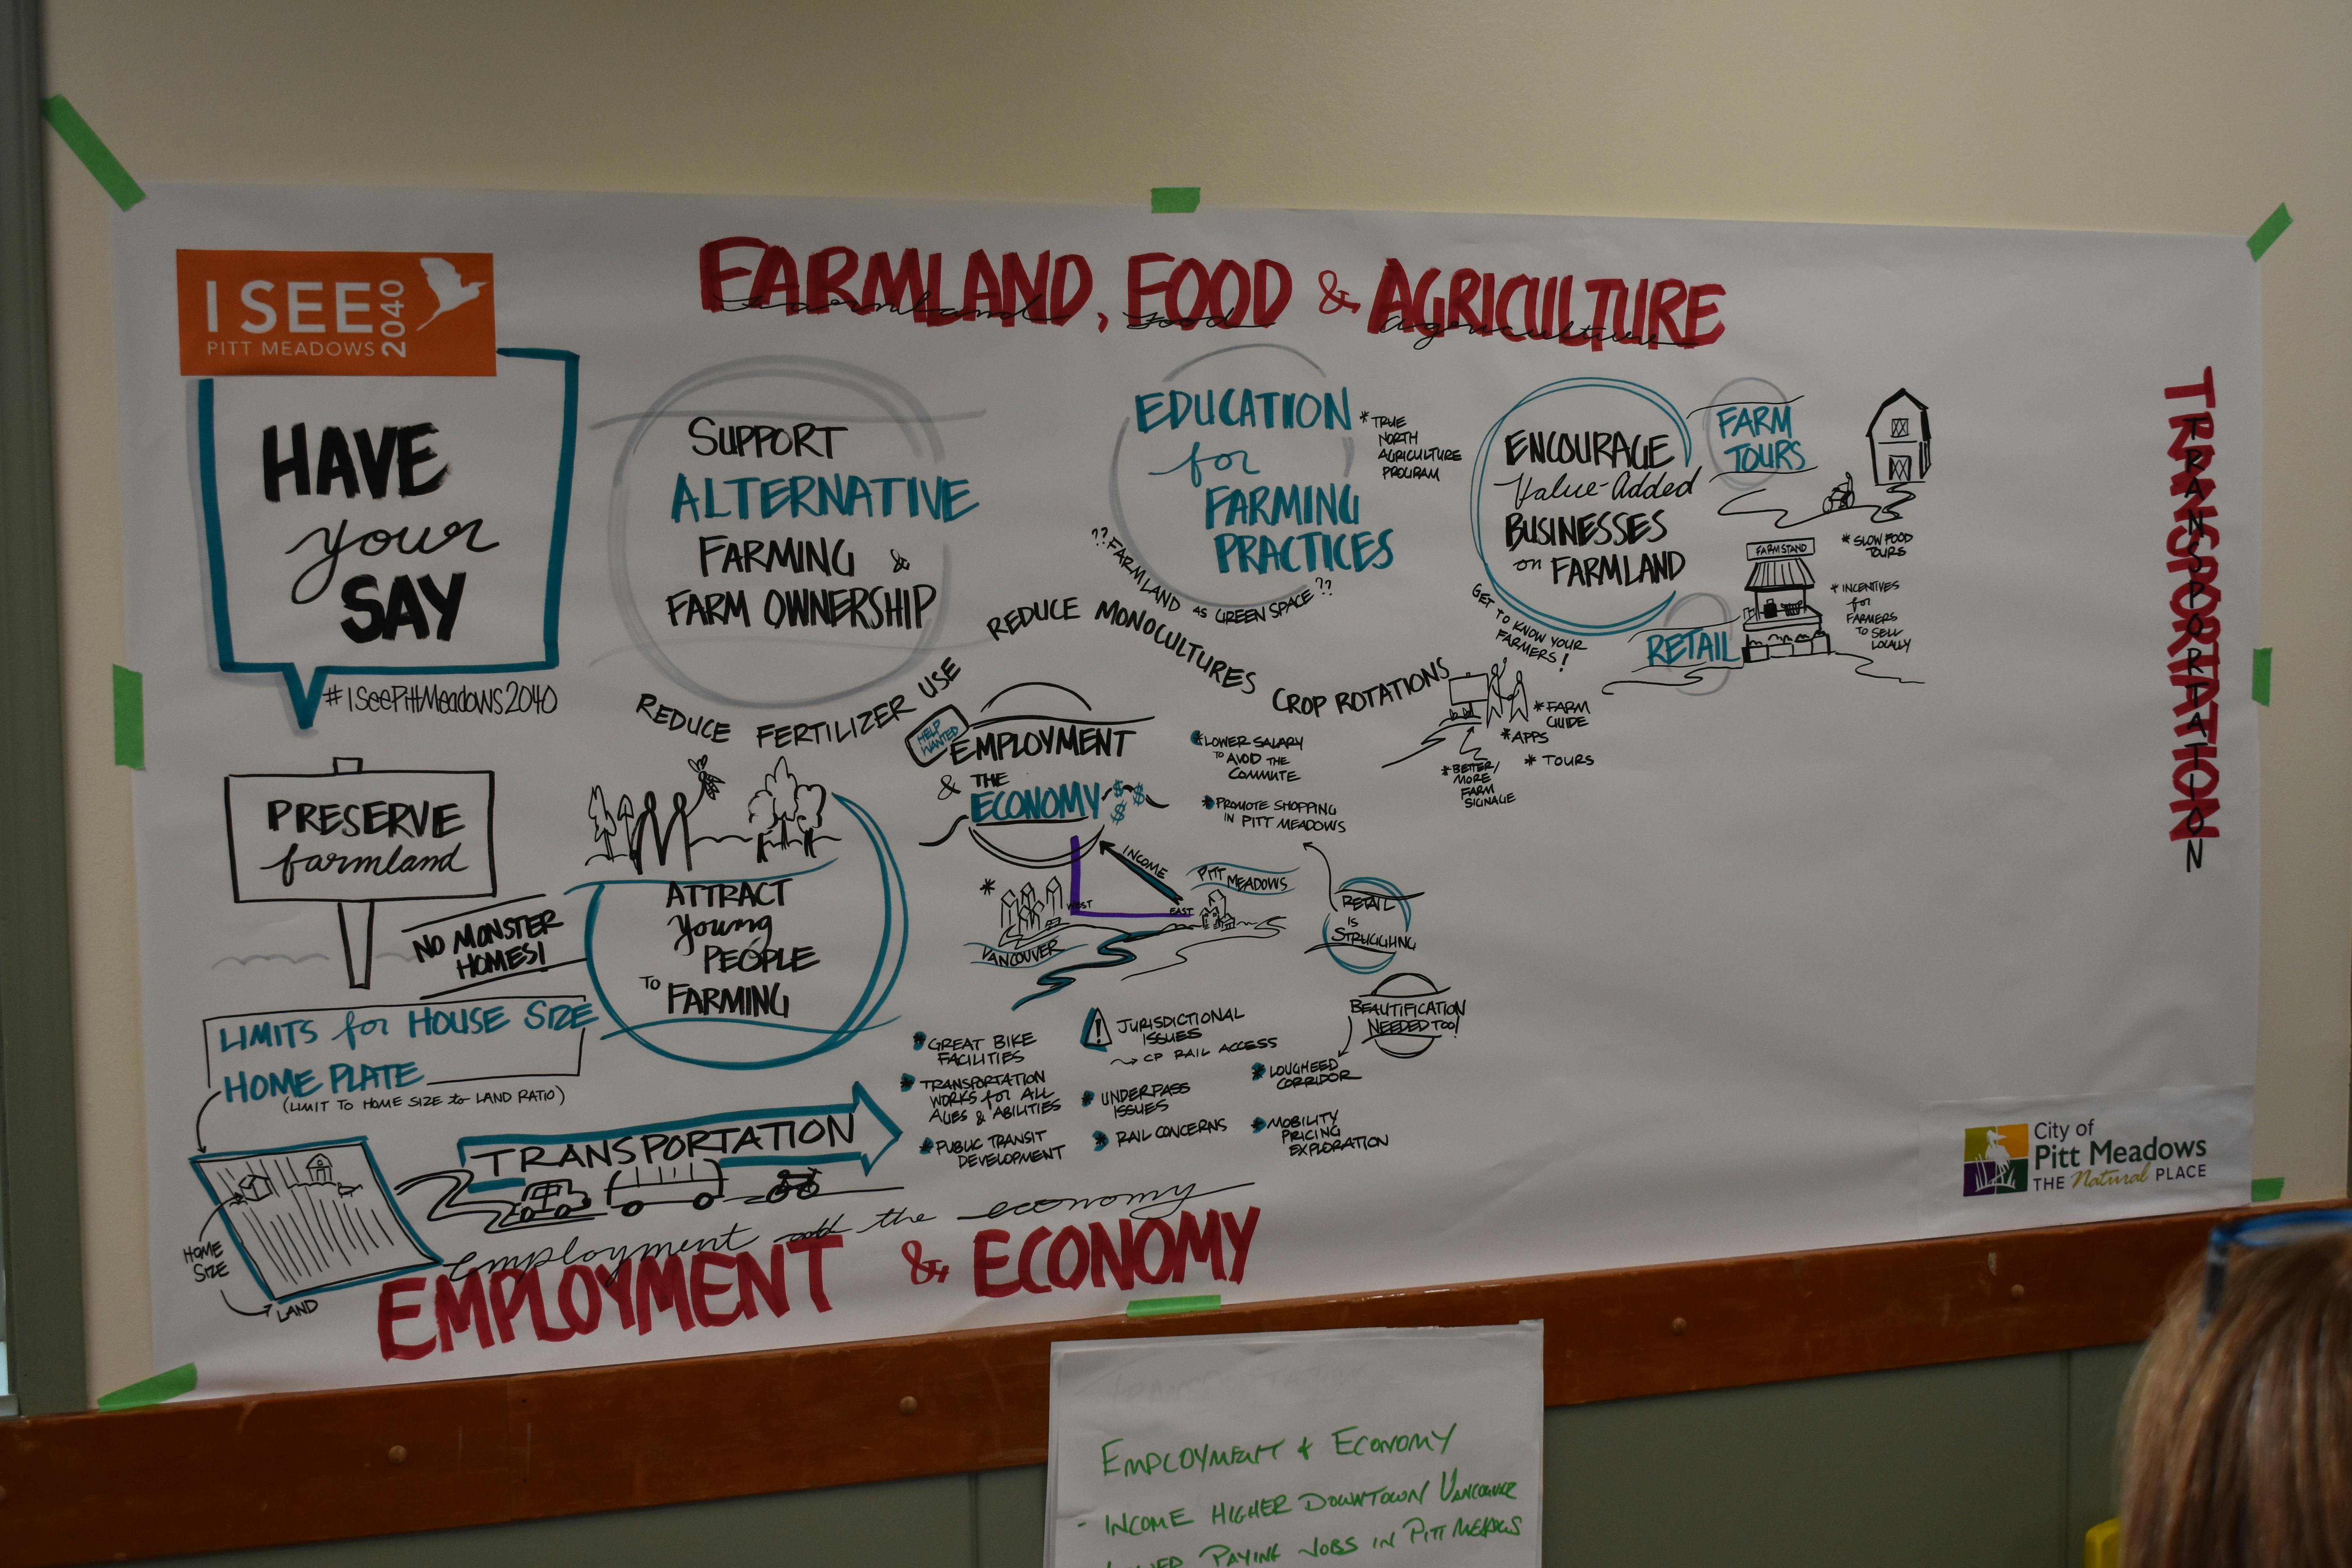 I SEE
PITT MEADOWS
2040
HAVE
your
SAY
#ISeePittMeadows2040
FARMLAND, FOOD & AGRICULTURE
farmland food agriculture
SUPPORT
ALTERNATIVE
FARMING &
FARM OWNERSHIP
EDUCATION
for
FARMING
PRACTICES
* TRUE
NORTH
AGRICULTURE
PROGRAM
?? FARMLAND AS GREEN SPACE ??
ENCOURAGE
Value-Added
BUSINESSES
on FARMLAND
FARM
TOURS
* SLOW FOOD
TOURS
FARMSTAND
* INCENTIVES
for
FARMERS
TO SELL
LOCALLY
RETAIL
GET TO KNOW YOUR
FARMERS!
* FARM
GUIDE
* APPS
* TOURS
* BETTER/
MORE
FARM
SIGNAGE
REDUCE FERTILIZER USE
REDUCE MONOCULTURES
CROP ROTATIONS
PRESERVE
farmland
NO MONSTER
HOMES!
LIMITS for HOUSE SIZE
HOME PLATE
(LIMIT TO HOME SIZE to LAND RATIO)
HOME
SIZE
LAND
ATTRACT
young
PEOPLE
TO FARMING
HELP
WANTED
EMPLOYMENT
& THE
ECONOMY
$ $ $
* LOWER SALARY
TO AVOID THE
COMMUTE
* PROMOTE SHOPPING
IN PITT MEADOWS
INCOME
*
WEST
EAST
VANCOUVER
PITT MEADOWS
RETAIL
IS
STRUGGLING
BEAUTIFICATION
NEEDED TOO!
* LOUGHEED
CORRIDOR
TRANSPORTATION
* GREAT BIKE
FACILITIES
* TRANSPORTATION
WORKS for ALL
AGES & ABILITIES
* PUBLIC TRANSIT
DEVELOPMENT
! JURISDICTIONAL
ISSUES
→ CP RAIL ACCESS
* UNDERPASS
ISSUES
* RAIL CONCERNS
* MOBILITY
PRICING
EXPLORATION
employment and the economy
EMPLOYMENT & ECONOMY
TRANSPORTATION
TRANSPORTATION
City of
Pitt Meadows
THE Natural PLACE
EMPLOYMENT & ECONOMY
- INCOME HIGHER DOWNTOWN VANCOUVER
PAYING JOBS IN PITT MEADOWS